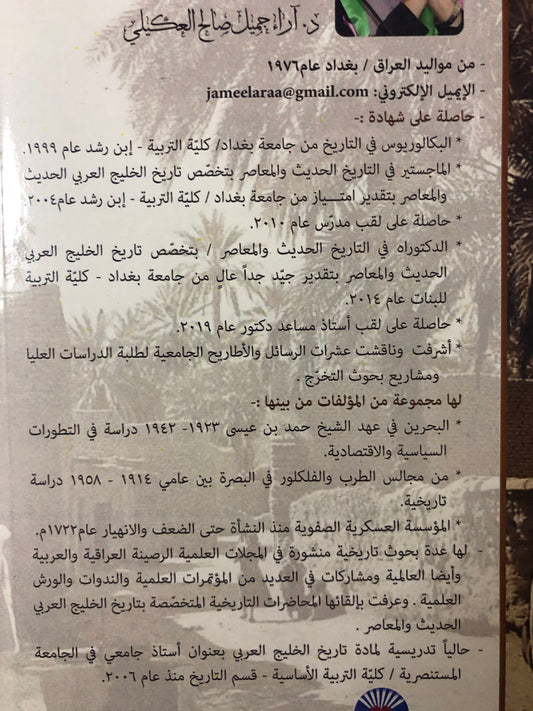 د. آراء جميل صالح العكيلي
- من مواليد العراق / بغداد عام ١٩٧٦
- الإيميل الإلكتروني: jameelaraa@gmail.com
- حاصلة على شهادة :-
* البكالوريوس في التاريخ من جامعة بغداد/ كليّة التربية - إبن رشد عام ١٩٩٩.
* الماجستير في التاريخ الحديث والمعاصر بتخصّص تاريخ الخليج العربي الحديث
والمعاصر بتقدير امتـــياز من جامعة بغداد / كليّة التربية - إبن رشد عام٢٠٠٤.
* حاصلة على لقب مدرّس عام ٢٠١٠.
* الدكتوراه في التاريخ الحديث والمعاصر / بتخصّص تاريخ الخليج العربي
الحديث والمعاصر بتقدير جيّد جداً عالٍ من جامعة بغداد - كليّة التربية
للبنات عام ٢٠١٤.
* حاصلة على لقب أستاذ مساعد دكتور عام ٢٠١٩.
* أشرفت وناقشت عشرات الرسائل والأطاريح الجامعية لطلبة الدراسات العليا
ومشاريع بحوث التخرّج .
لها مجموعة من المؤلفات من بينها :-
* البحرين في عهد الشيخ حمد بن عيسى ١٩٢٣- ١٩٤٢ دراسة في التطورات
السياسية والاقتصادية.
* من مجالس الطرب والفلكلور في البصرة بين عامي ١٩١٤ - ١٩٥٨ دراسة
تاريخية.
* المؤسسة العسكرية الصفوية منذ النشأة حتى الضعف والانهيار عام١٧٢٢م.
- لها عدة بحوث تاريخية منشورة في المجلات العلمية الرصينة العراقية والعربية
وأيضا العالمية ومشاركات في العديد من المؤتمرات العلمية والندوات والورش
العلمية . وعرفت بإلقائها المحاضرات التاريخية المتخصّصة بتاريخ الخليج العربي
الحديث والمعاصر .
- حالياً تدريسية لمادة تاريخ الخليج العربي بعنوان أستاذ جامعي في الجامعة
المستنصرية / كليّة التربية الأساسية - قسم التاريخ منذ عام ٢٠٠٦.